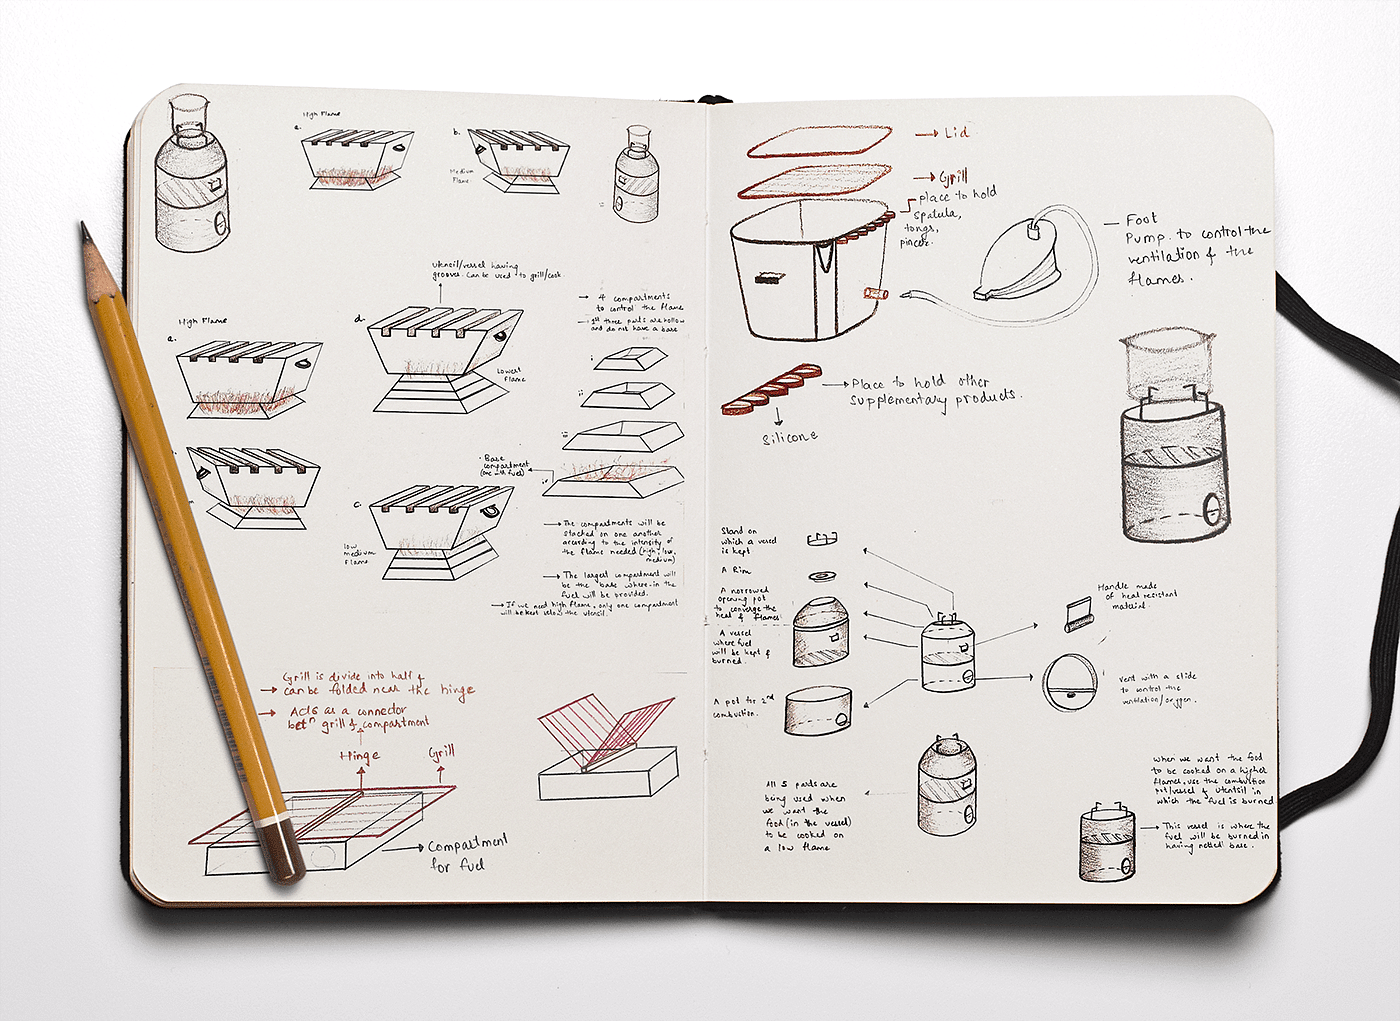 High Flame
a.
b.
Medium
Flame.
Utencil/vessel having
grooves. Can be used to grill/cook.
High Flame
a.
d.
Lowest
Flame
→ 4 compartments
to control the flame
→ 1st three parts are hollow
and do not have a base
i
ii
iii
iv
· Base
compartment
(one with fuel)
c.
low
medium
flame
→ The compartments will be
stacked on one another
according to the intensity of
the flame needed (high, low,
medium)
→ The largest compartment will
be the base where-in the
fuel will be provided.
→ If we need high flame, only one compartment
will be kept below the utensil.
Grill is divide into half &
→ can be folded near the hinge
→ Acts as a connector
betn grill & compartment
Hinge
Grill
→ Compartment
for fuel
→ Lid
→ Grill
place to hold
spatula,
tongs,
pincer.
Foot
Pump. to control the
ventilation & the
flames.
→ Place to hold other
supplementary products.
Silicone
Stand on
which a vessel
is kept
A Rim
A narrowed
opening pot
to converge the
heat & flames
A vessel
where fuel
will be kept &
burned.
A pot for 2nd
combustion.
Handle made
of heat resistant
material.
Vent with a slide
to control the
ventilation/oxygen.
All 5 parts are
being used when
we want the
food (in the vessel)
to be cooked on
a low flame
When we want the food
to be cooked on a higher
flames, use the combustion
pot/vessel & utensil in
which the fuel is burned
→ This vessel is where the
fuel will be burned in
having netted base.